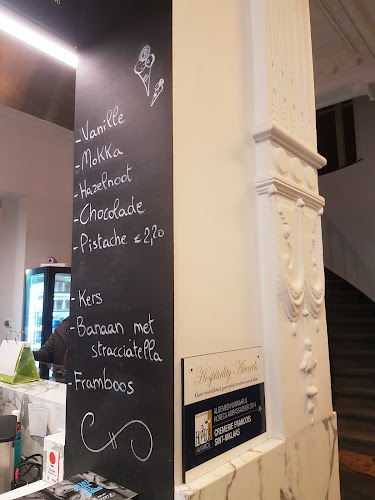 - Vanille
- Mokka
- Hazelnoot
- Chocolade
- Pistache € 2,20
- Kers
- Banaan met
stracciatella
- Framboos
Hospitality Awards
ALGEMEEN WINNAAR &
HORECA AMBASSADEUR 2014
CREMERIE FRANCOIS
SINT-NIKLAAS